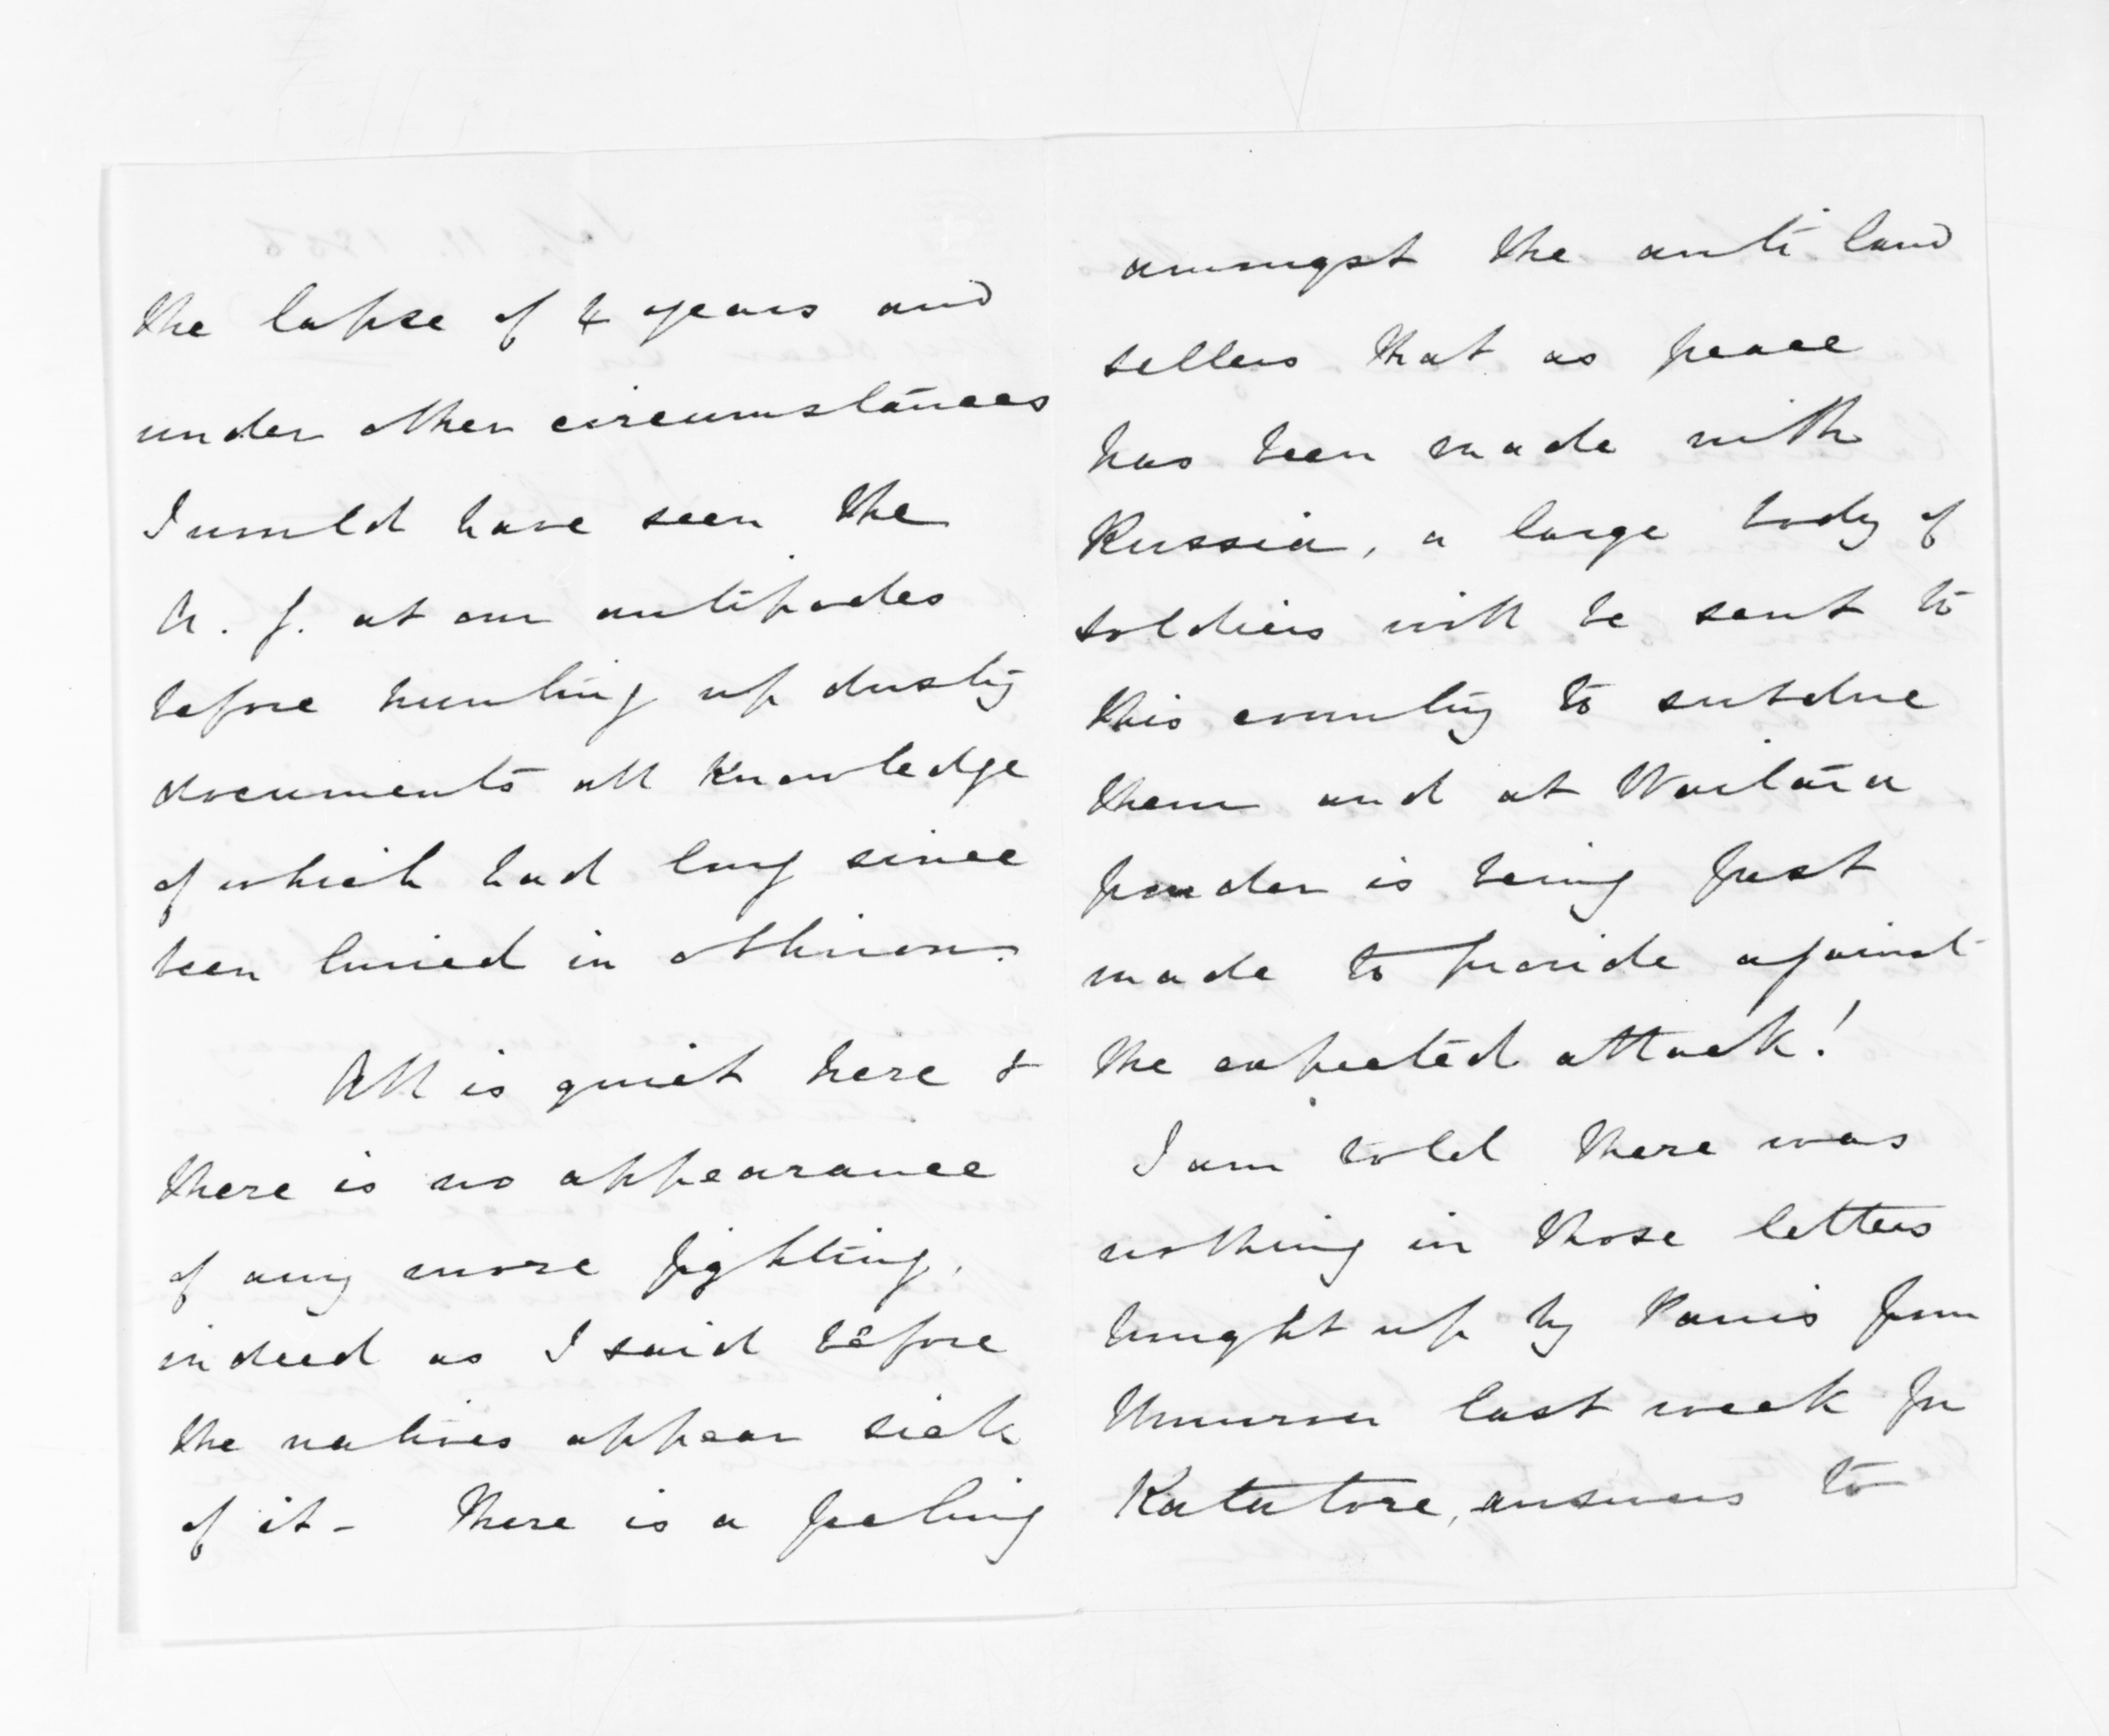 the lapse of 4 years and
under other circumstances
I would have seen the
A. G. at our antipodes
before hunting up dusty
documents all knowledge
of which had long since
been buried in oblivion.
All is quiet here &
there is no appearance
of any more fighting,
indeed as I said before
the natives appear sick
of it - There is a feeling
amongst the anti land
sellers that as peace
has been made with
Russia, a large body of
soldiers will be sent to
this country to subdue
them and at Waitara
powder is being fast
made to provide against
the expected attack!
I am told there was
nothing in those letters
brought up by Parris from
last week for
Katatore, answers to